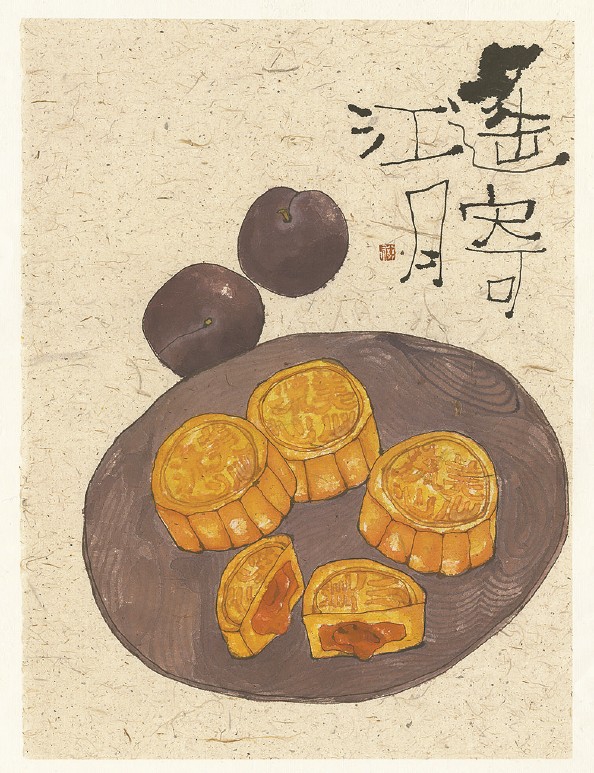 遥寄
江月